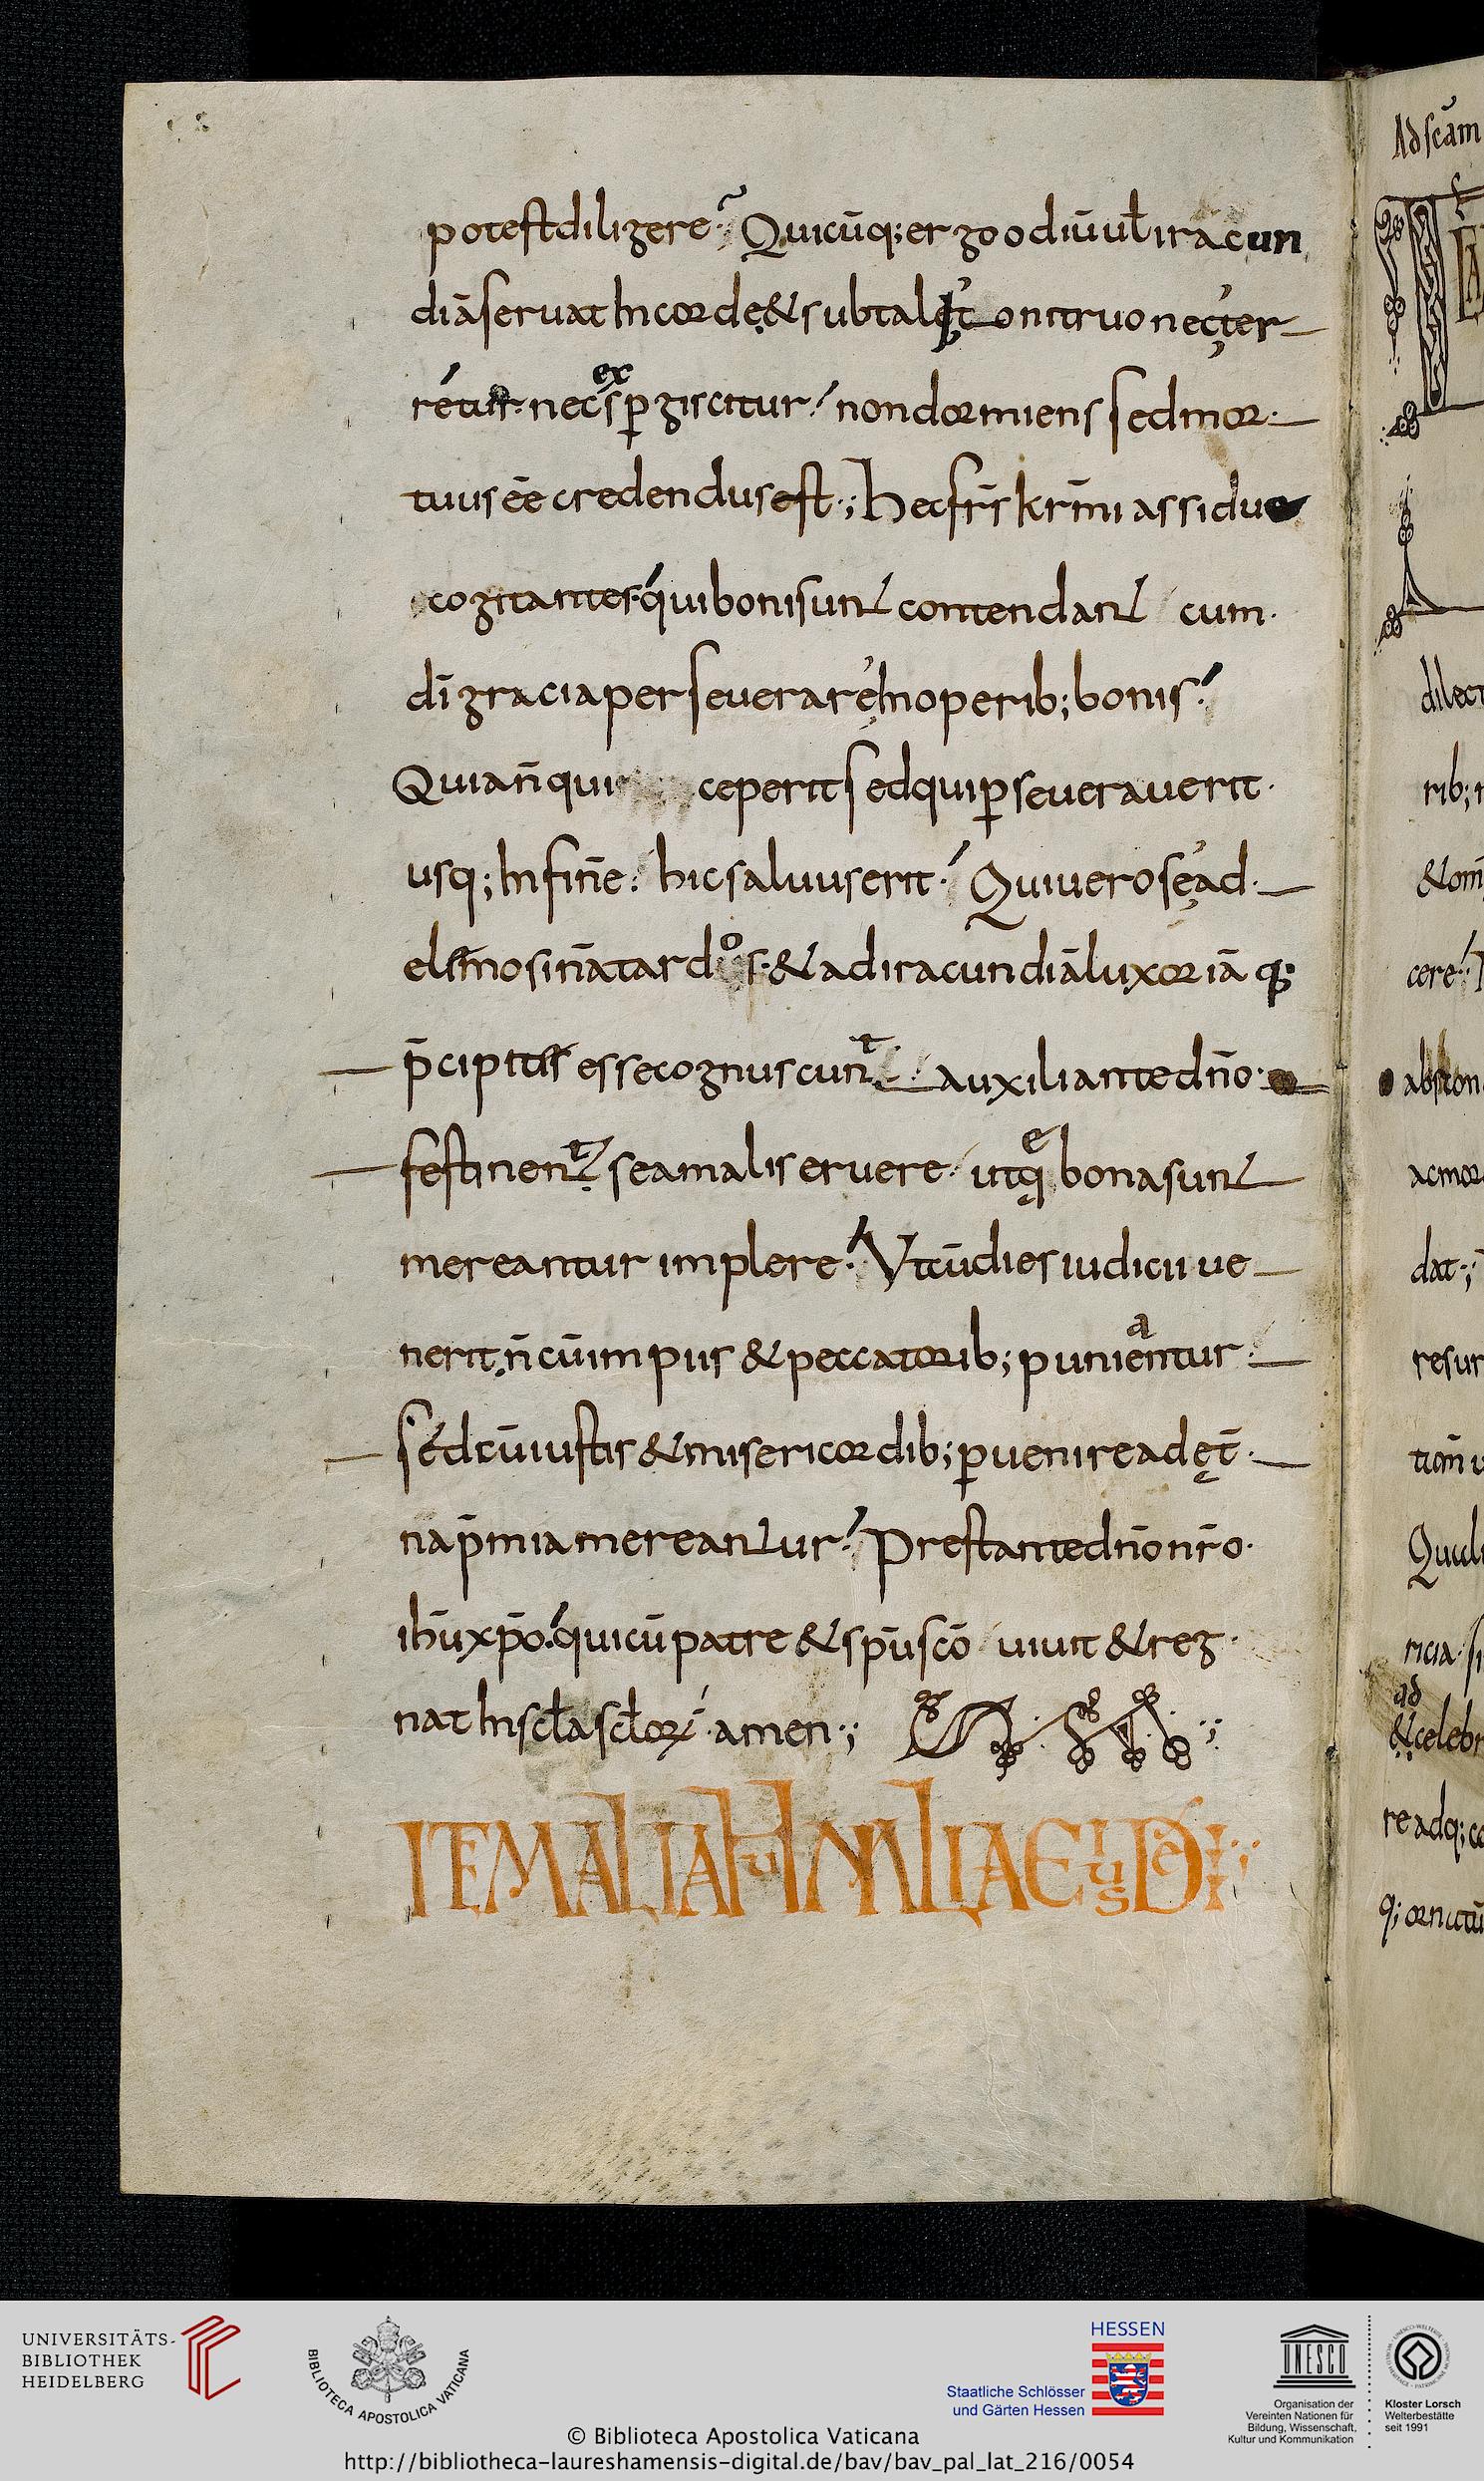 potest diligere· Quicūq; ergo odiū ul̄ iracun
diā seruat in corde & sub tali t onitruo nec ter
retur· nec ex p̱giscitur· non dormiens sed mor·
tuus ēe credendus est·; Hec fr̄s kr̄mi assidue
cogitantes· qui boni sunt contendant cum·
dī gracia perseverare in operib; bonis·
Quia n̄ qui ceperit sed qui p̱severaverit·
usq; in fin̄e· hic saluus erit· Qui uero se ad·
elimosinā tardos· & ad iracundiā luxoriā q;
p̄cipites esse cognuscunt auxiliante dn̄o·
festinent se a malis eruere· ut que bona sunt
mereantur implere· Ut cū dies iudicii ue
nerit· n̄ cū impiis & peccatorib; puniantur·
sed cū iustis & misericordib; p̱uenire ad ęt̄·
na p̄mia mereantur· Prestante dn̄o nr̄o·
ihū xp̄o· qui cū patre & sp̄u sc̄o uiuit & reg·
nat in scl̄a scl̄or· amen·;
ITEM ALIA HUMILIA EIUSDE
Ad scām
dilect
rib;
& om̄
cere·
abscon
acmor
dat·;
resur
tion̄ u
Quid
ricia· si
ad
& celebr
re adq; co
q; ornatū
UNIVERSITÄTS-
BIBLIOTHEK
HEIDELBERG
BIBLIOTECA APOSTOLICA VATICANA
HESSEN
Staatliche Schlösser
und Gärten Hessen
UNESCO
Organisation der
Vereinten Nationen für
Bildung, Wissenschaft,
Kultur und Kommunikation
Kloster Lorsch
Welterbestätte
seit 1991
© Biblioteca Apostolica Vaticana
http://bibliotheca-laureshamensis-digital.de/bav/bav_pal_lat_216/0054